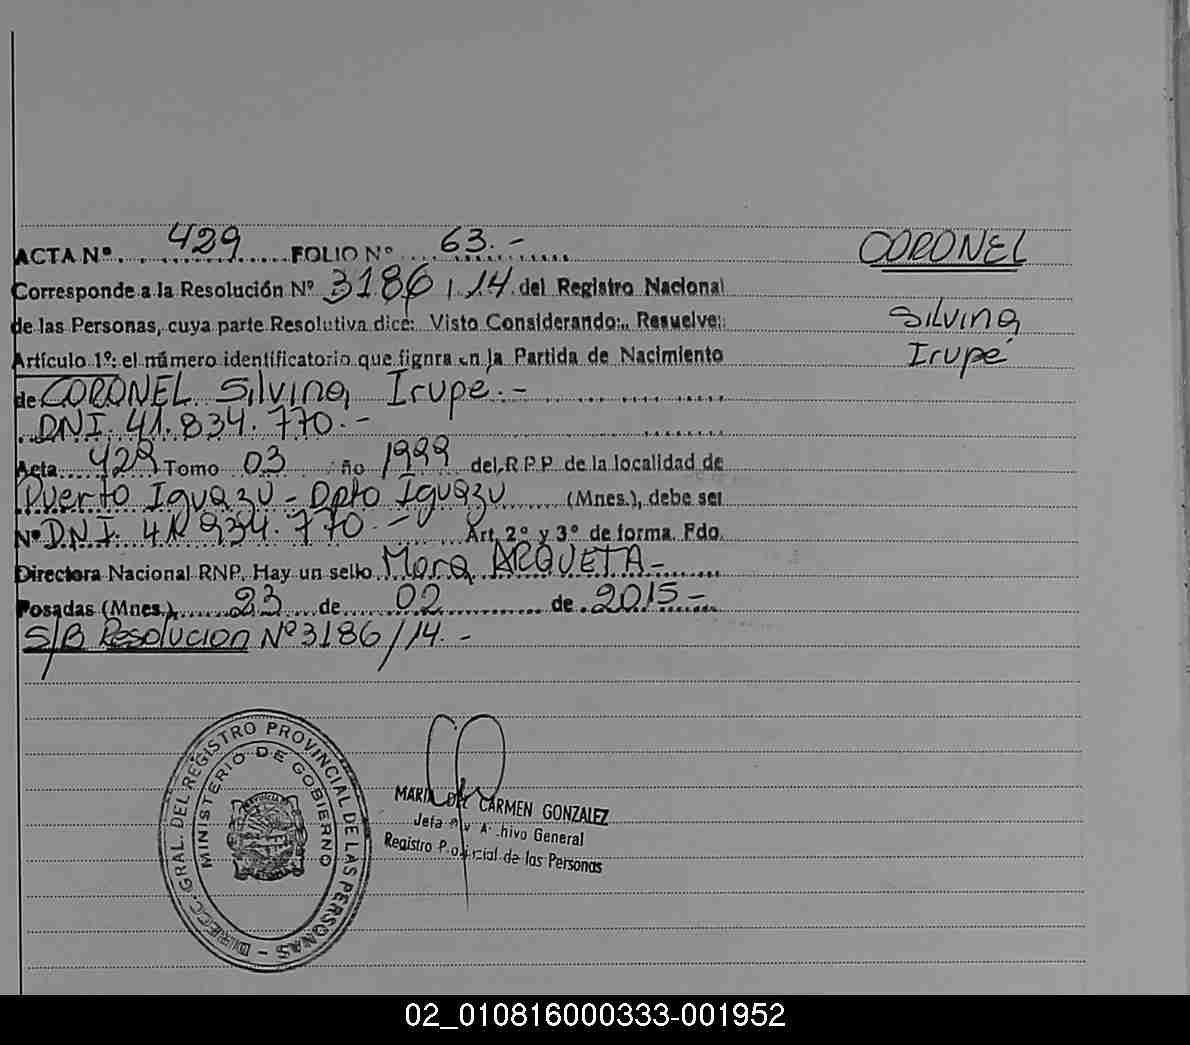 ACTA Nº. 429 FOLIO Nº 63.-
CORONEL
Silvina
Irupé
Corresponde a la Resolución Nº 3186/14 del Registro Nacional
de las Personas, cuya parte Resolutiva dice: Visto Considerando:. Resuelve:
Artículo 1º: el número identificatorio que fignra en la Partida de Nacimiento
de CORONEL Silvina Irupe.-
DNI. 41.834.770.-
Acta 429 Tomo 03 ño 1999 del R P P de la localidad de
Puerto Iguazu - Dpto Iguazu (Mnes.), debe ser
Nº DNI. 41 934.770.- Art. 2º y 3º de forma. Fdo.
Directora Nacional RNP. Hay un sello Mora ARQUETA-
Posadas (Mnes.), 23 de 02 de 2015-
S/B Resolucion Nº 3186/14.-
DIRECC. GRAL. DEL REGISTRO PROVINCIAL DE LAS PERSONAS -
MINISTERIO DE GOBIERNO
MARIA DEL CARMEN GONZALEZ
Jefa Archivo General
Registro Provincial de las Personas
02_010816000333-001952